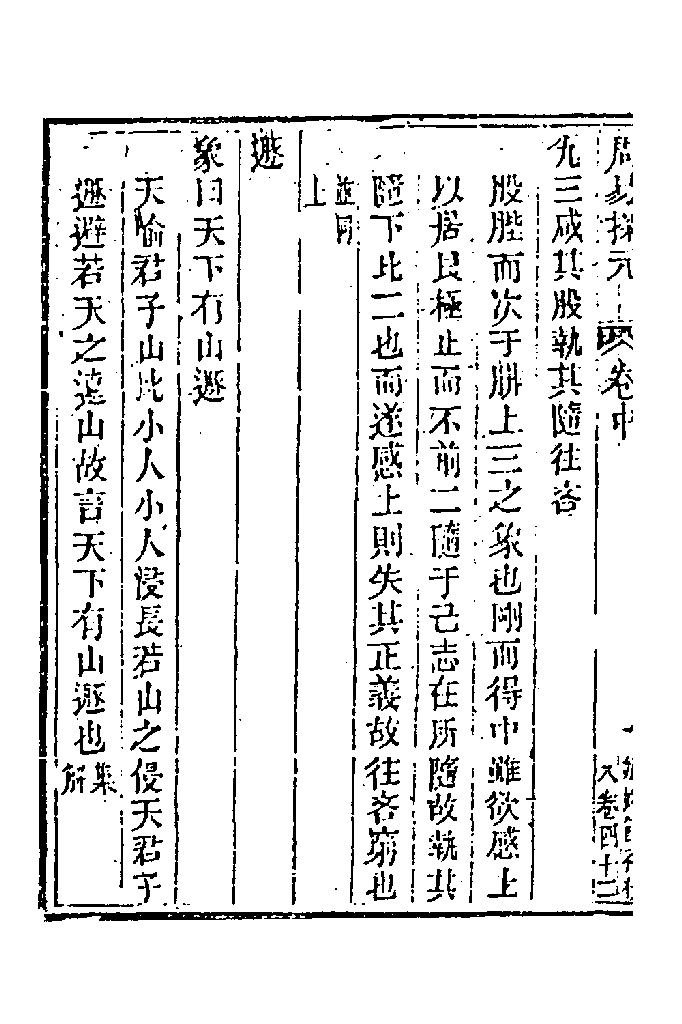 周易探元 卷中
又卷四十二
九三咸其股執其隨往吝
股䏶而次于腓上三之象也剛而得中雖欲感上
以居艮極止而不前二隨于己志在所隨故執其
隨下比二也而遂感上則失其正義故往吝窮也
並同
上
遯
象曰天下有山遯
天喻君子山比小人小人浸長若山之侵天君子
遯避若天之遠山故言天下有山遯也集
解